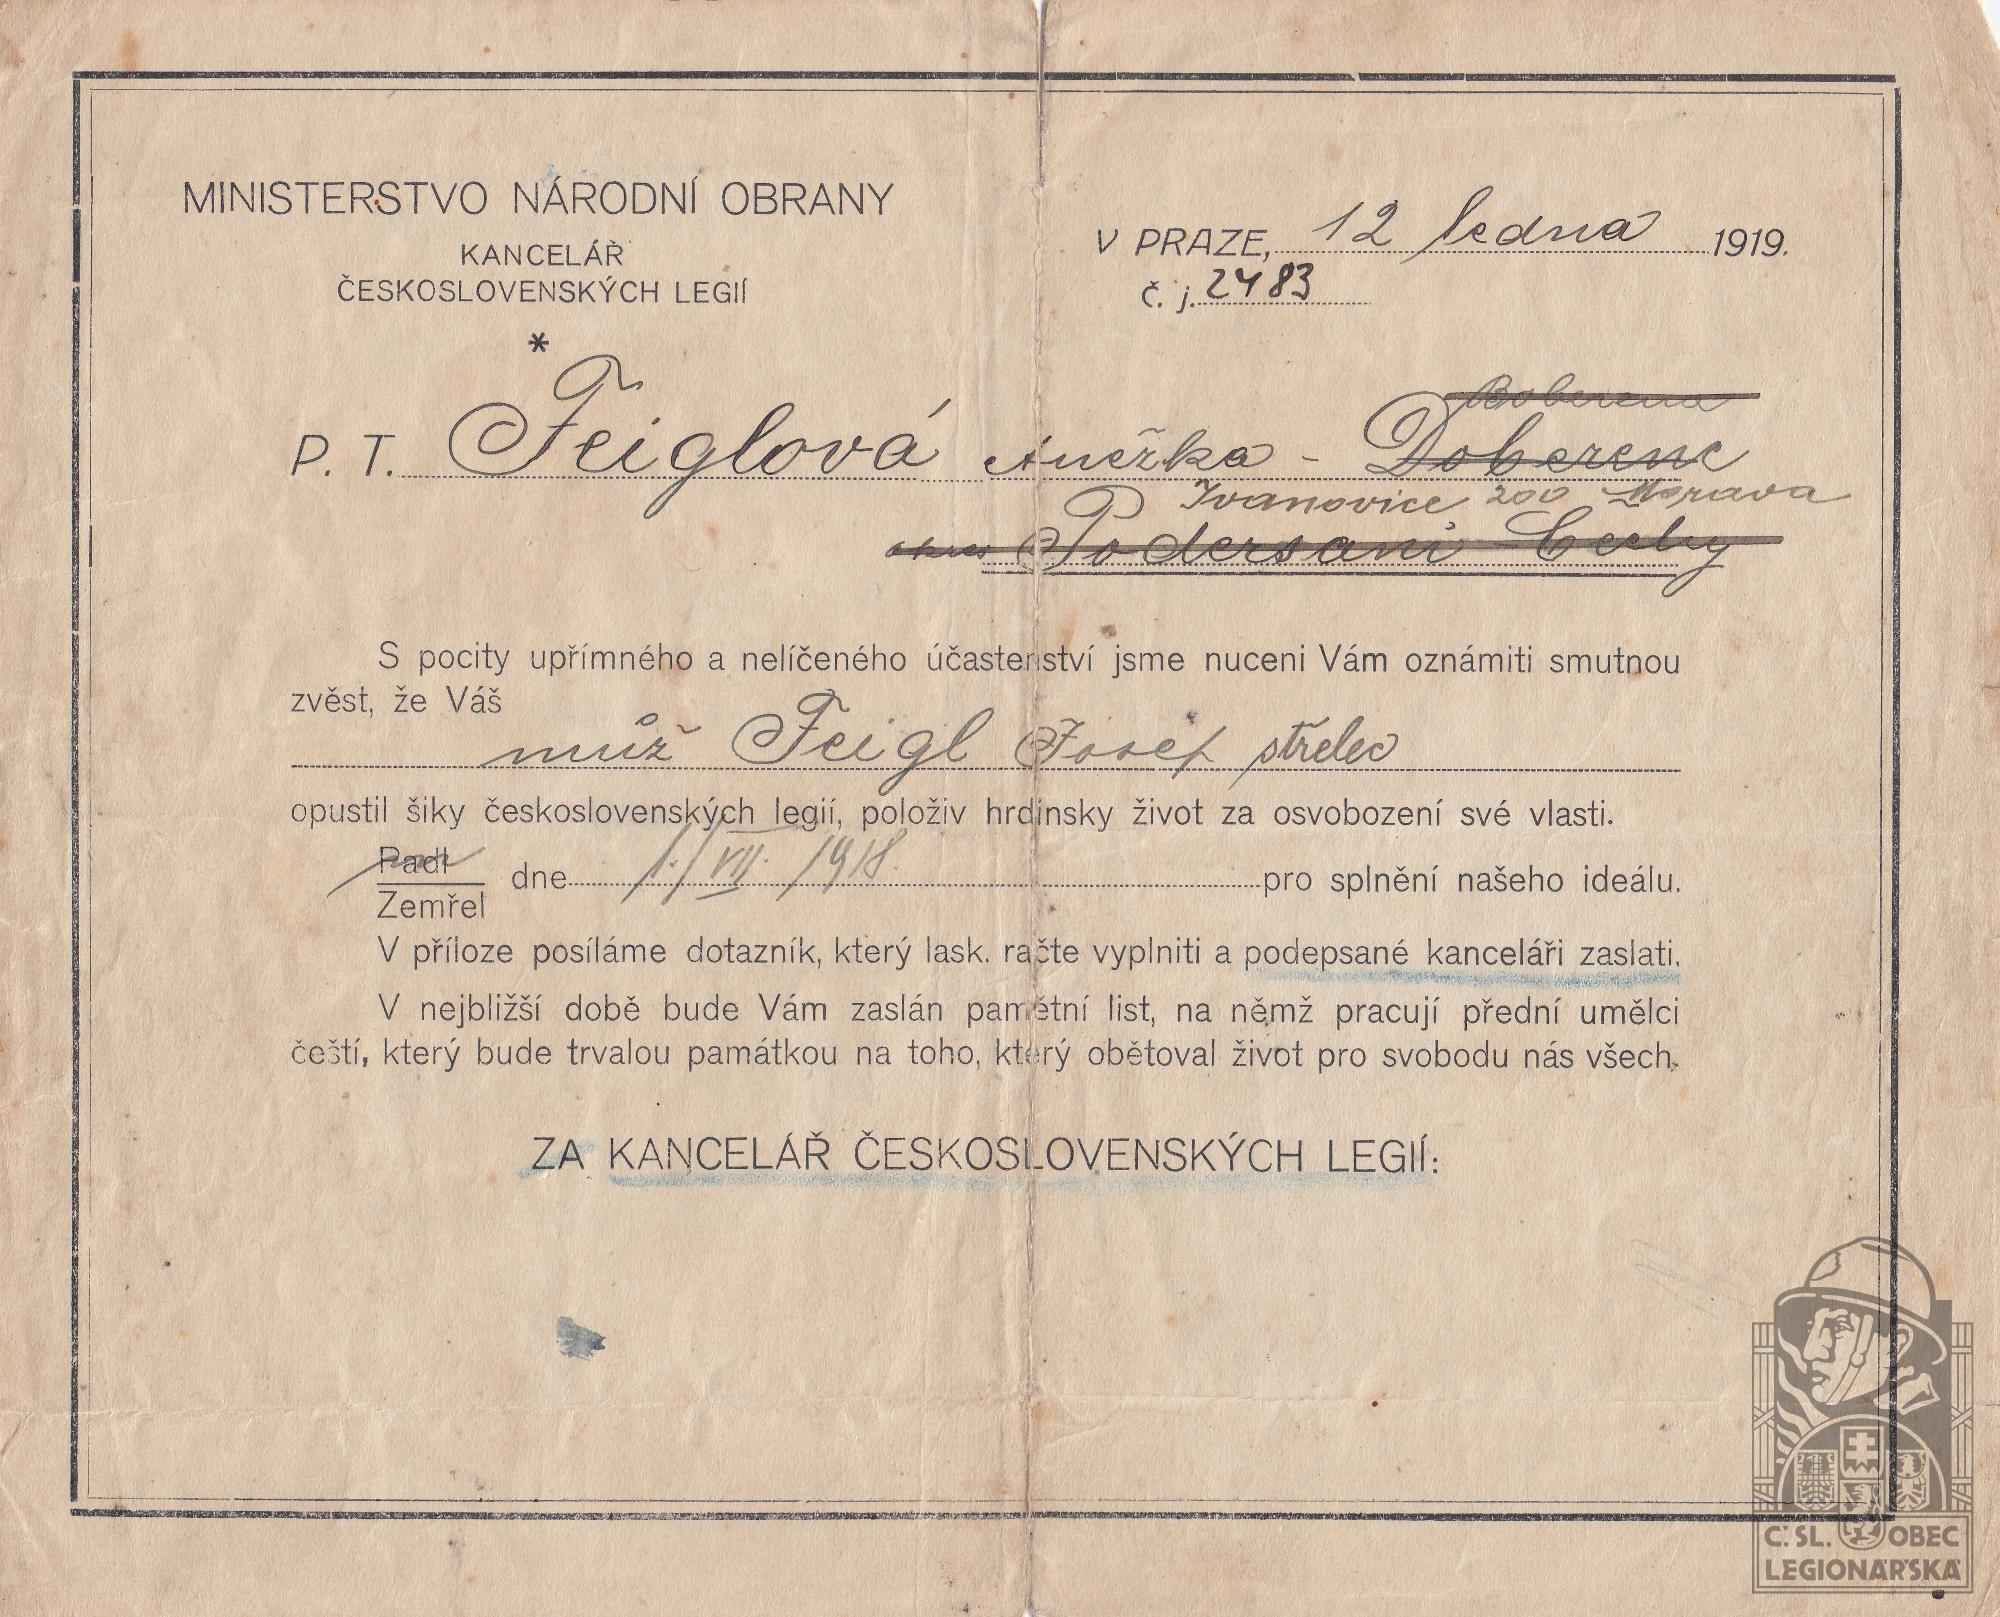 MINISTERSTVO NÁRODNÍ OBRANY
KANCELÁŘ
ČESKOSLOVENSKÝCH LEGIÍ
*
V PRAZE, 12 ledna 1919.
č. j. 2483
P. T. Feiglová Anežka - Doberenc
Ivanovice 200 Morava
okres Podersani Čechy
S pocity upřímného a nelíčeného účastenství jsme nuceni Vám oznámiti smutnou
zvěst, že Váš
muž Feigl Josef střelec
opustil šiky československých legií, položiv hrdinsky život za osvobození své vlasti.
Padl
Zemřel
dne 1./VII. 1918. pro splnění našeho ideálu.
V příloze posíláme dotazník, který lask. račte vyplniti a podepsané kanceláři zaslati.
V nejbližší době bude Vám zaslán pamětní list, na němž pracují přední umělci
čeští, který bude trvalou památkou na toho, který obětoval život pro svobodu nás všech.
ZA KANCELÁŘ ČESKOSLOVENSKÝCH LEGIÍ:
Č. SL. OBEC
LEGIONÁŘSKÁ